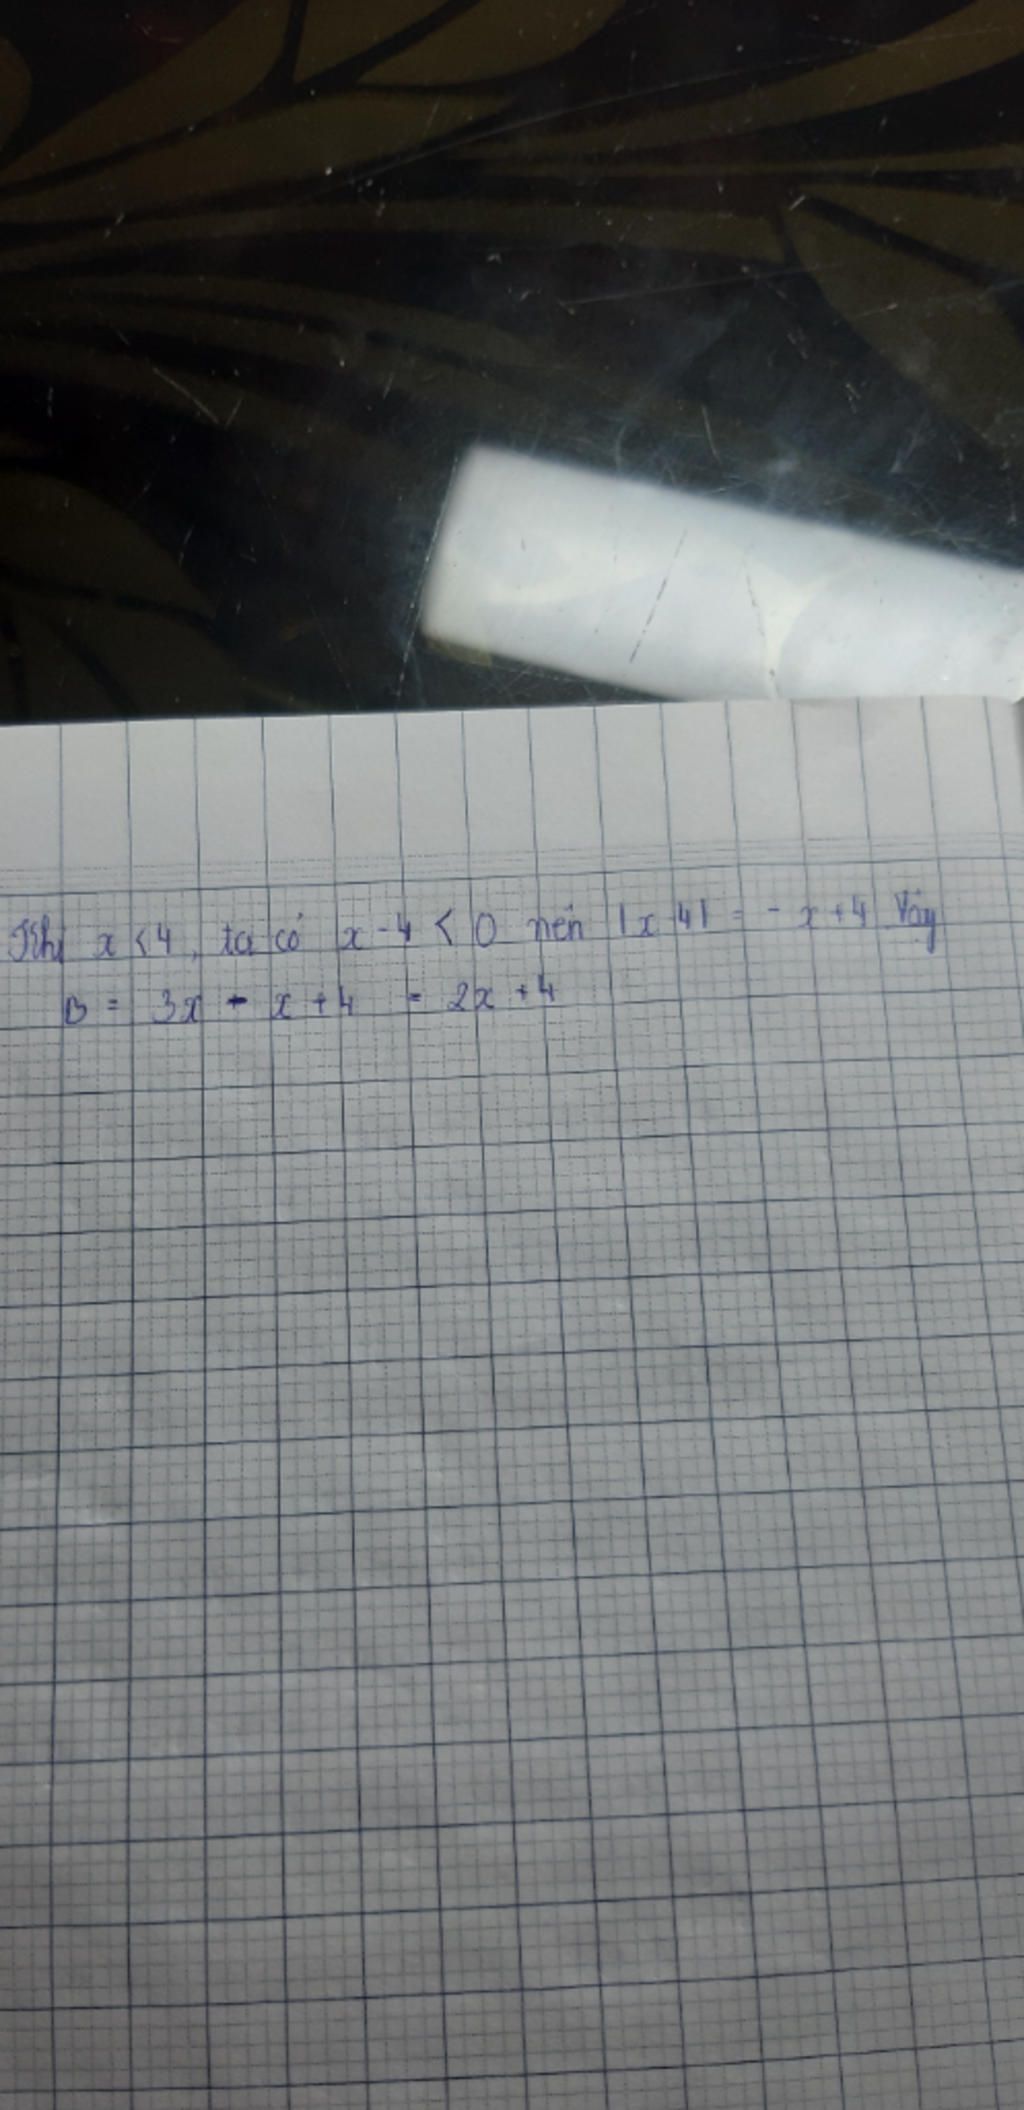 Khi x < 4, ta có x - 4 < 0 nên |x 4| = - x + 4 Vậy
B = 3x - x + 4 = 2x + 4